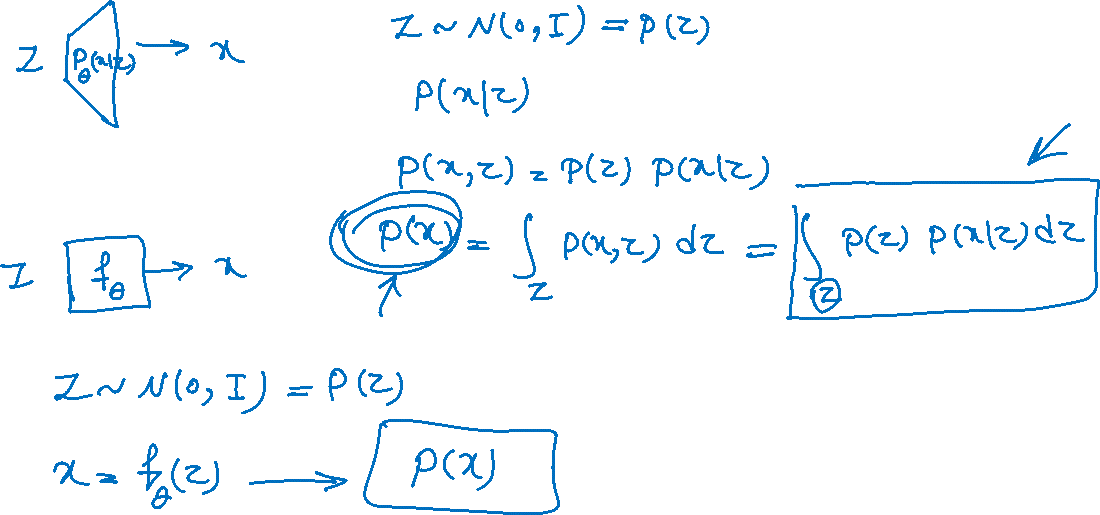 Z P_θ(x|z) → x
Z ~ N(0, I) = P(z)
P(x|z)
P(x,z) = P(z) P(x|z)
P(x) = ∫_Z P(x,z) dz = ∫_z P(z) P(x|z) dz
Z f_θ → x
Z ~ N(0, I) = P(z)
x = f_θ(z) → P(x)